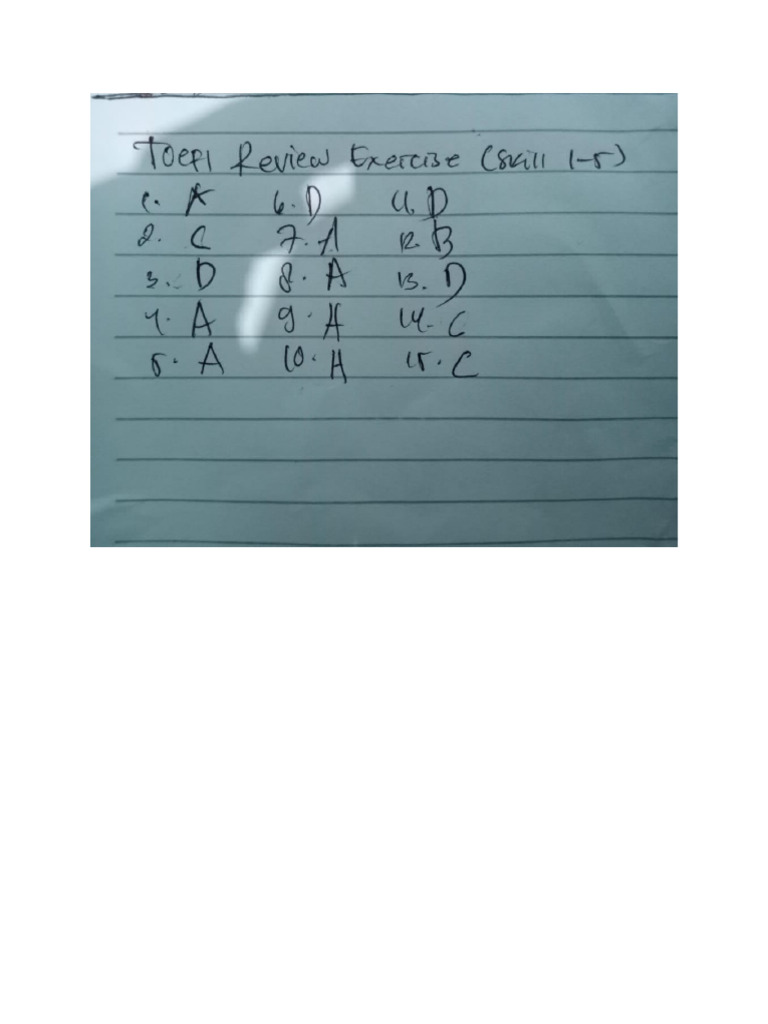 TOEFl Review Exercise (Skill 1-5)
1. A 6. D 11. D
2. C 7. A 12. B
3. D 8. A 13. D
4. A 9. A 14. C
5. A 10. A 15. C